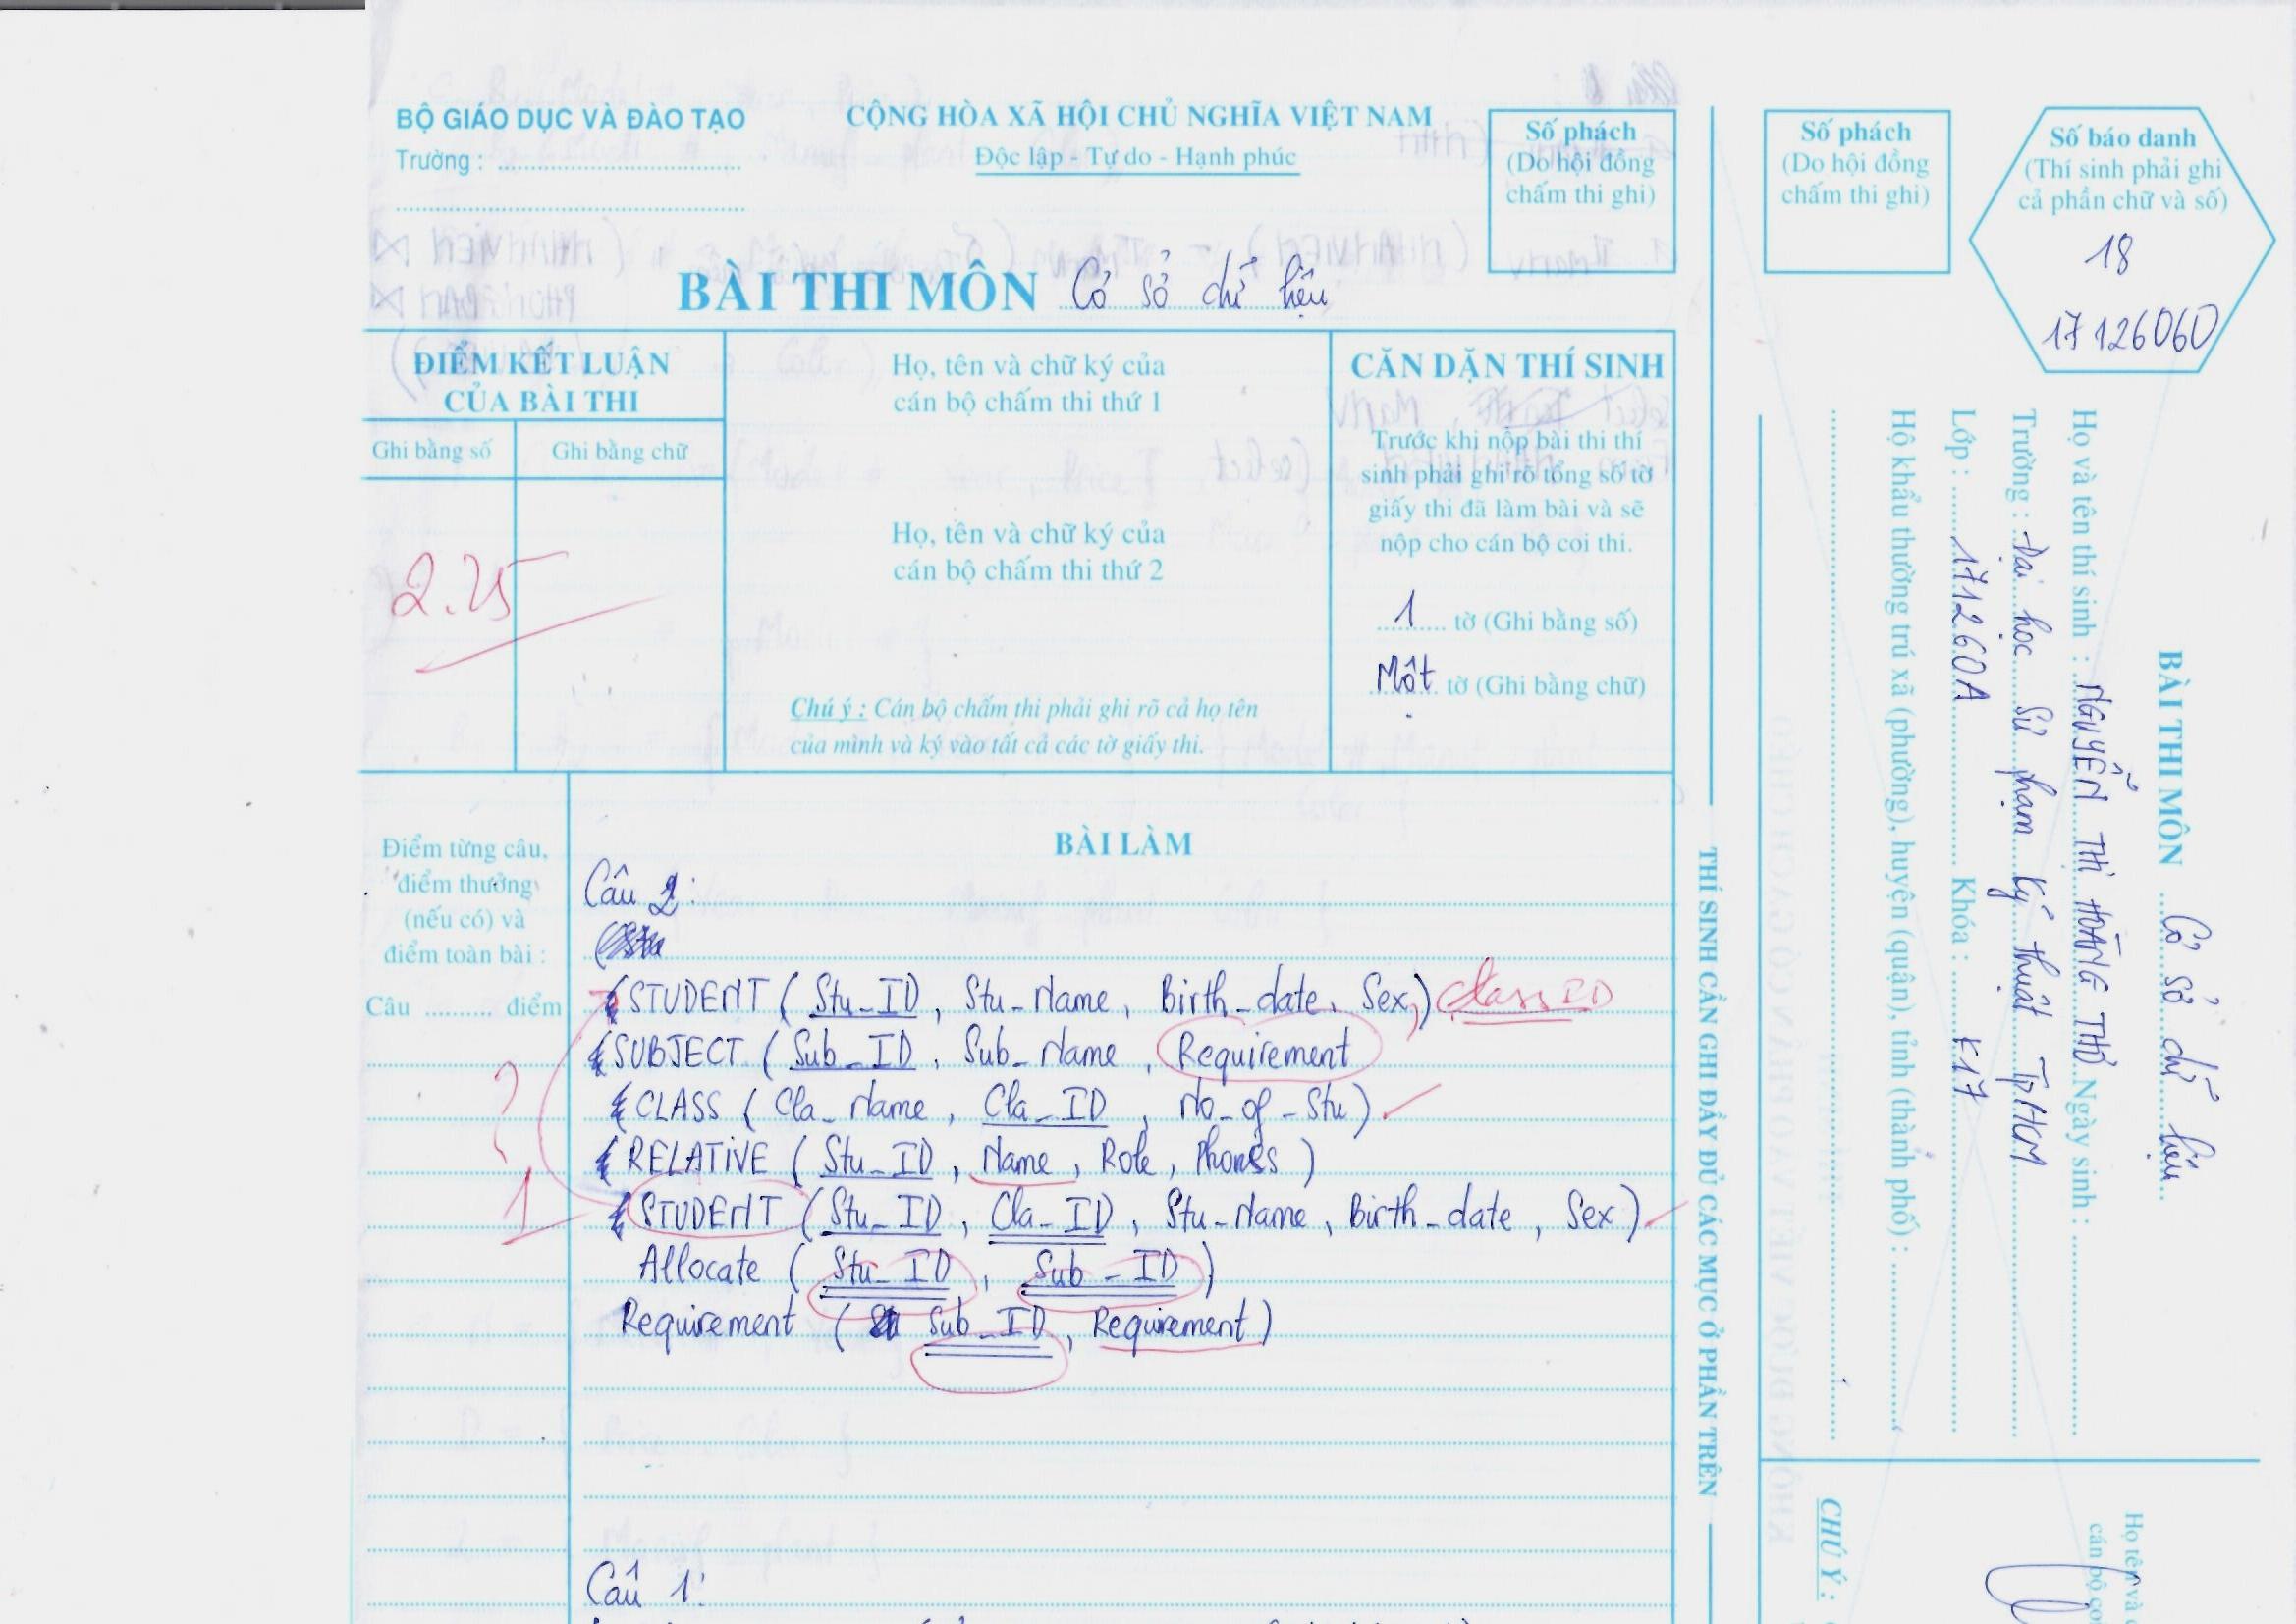 BỘ GIÁO DỤC VÀ ĐÀO TẠO
Trường :
CỘNG HÒA XÃ HỘI CHỦ NGHĨA VIỆT NAM
Độc lập - Tự do - Hạnh phúc
Số phách
(Do hội đồng
chấm thi ghi)
BÀI THI MÔN Cơ sở dữ liệu
ĐIỂM KẾT LUẬN
CỦA BÀI THI
Ghi bằng số
Ghi bằng chữ
2.25
Họ, tên và chữ ký của
cán bộ chấm thi thứ 1
Họ, tên và chữ ký của
cán bộ chấm thi thứ 2
Chú ý : Cán bộ chấm thi phải ghi rõ cả họ tên
của mình và ký vào tất cả các tờ giấy thi.
CĂN DẶN THÍ SINH
Trước khi nộp bài thi thí
sinh phải ghi rõ tổng số tờ
giấy thi đã làm bài và sẽ
nộp cho cán bộ coi thi.
1 tờ (Ghi bằng số)
Một tờ (Ghi bằng chữ)
Điểm từng câu,
điểm thưởng
(nếu có) và
điểm toàn bài :
Câu .......... điểm
BÀI LÀM
Câu 2:
STUDENT ( Stu_ID , Stu_Name , Birth_date , Sex,) Class ID
SUBJECT ( Sub_ID , Sub_Name , Requirement
CLASS ( Cla_Name , Cla_ID , No_of_Stu)
RELATIVE ( Stu_ID , Name , Role , Phones )
1 STUDENT ( Stu_ID , Cla_ID , Stu_Name , Birth_date , Sex )
Allocate ( Stu_ID , Sub_ID )
Requirement ( Sub_ID , Requirement )
Câu 1:
THÍ SINH CẦN GHI ĐẦY ĐỦ CÁC MỤC Ở PHẦN TRÊN
Số phách
(Do hội đồng
chấm thi ghi)
Số báo danh
(Thí sinh phải ghi
cả phần chữ và số)
18
17126060
BÀI THI MÔN Cơ sở dữ liệu
Họ và tên thí sinh : NGUYỄN THỊ HOÀNG THƠ Ngày sinh :
Trường : Đại học Sư phạm Kỹ thuật TpHCM
Lớp : 171260A Khóa : K17
Hộ khẩu thường trú xã (phường), huyện (quận), tỉnh (thành phố) :
CHÚ Ý :
Họ tên và
cán bộ co